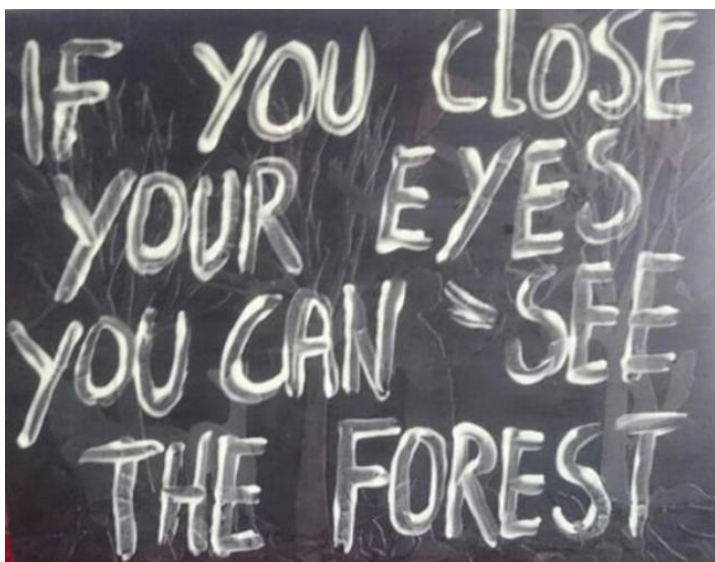 IF YOU CLOSE
YOUR EYES
YOU CAN SEE
THE FOREST